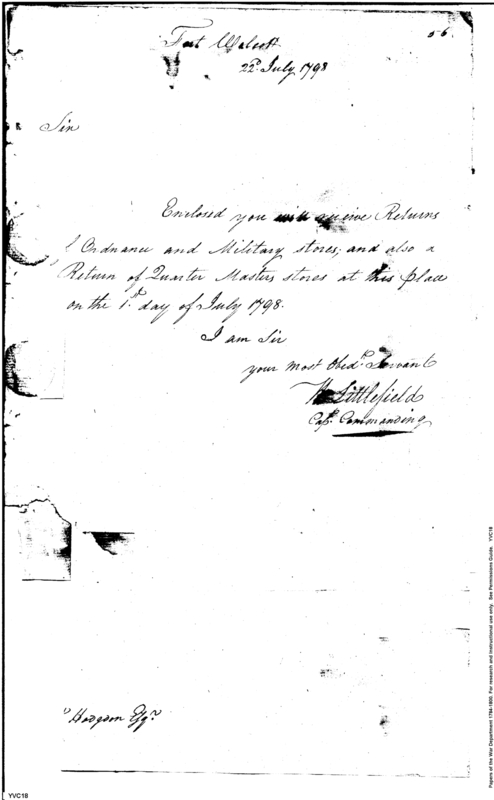 56.
Fort Wolcott
22d. July 1798
Sir
Enclosed you will receive Returns
f Ordnance and Military stores; and also a
Return of Quarter Masters stores at this place
on the 1st. day of July 1798.
I am Sir
your most Obedt. Servant
W Littlefield
Capt. Commanding
Hodgdon Esqr.
Papers of the War Department 1784-1800. For research and instructional use only. See Permissions Guide. YVC18
YVC18